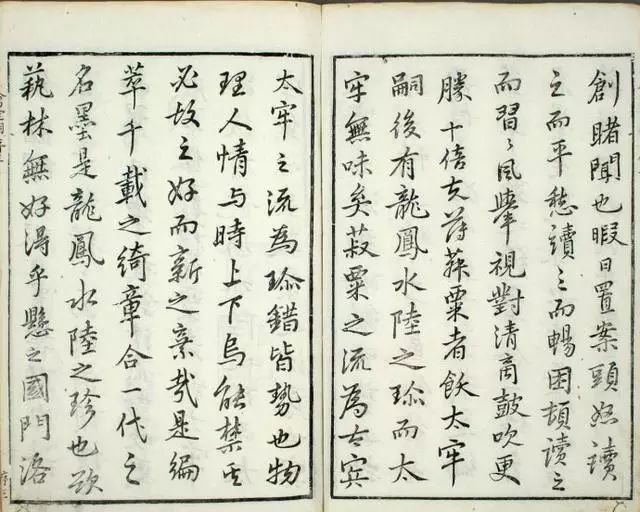 創睹聞也暇日置案頭怒讀
之而平愁讀之而暢困頓讀之
而習習風舉視對清商鼓吹更
勝十倍夫薄菽粟者飫太牢
嗣後有龍鳳水陸之珎而太
牢無味矣菽粟之流為古寅
太牢之流為珎錯皆勢也物
理人情与時上下烏能禁其
必故之好而新之棄哉是編
萃千載之綺章合一代之
名墨是龍鳳水陸之珍也欲
藝林無好得乎懸之國門洛